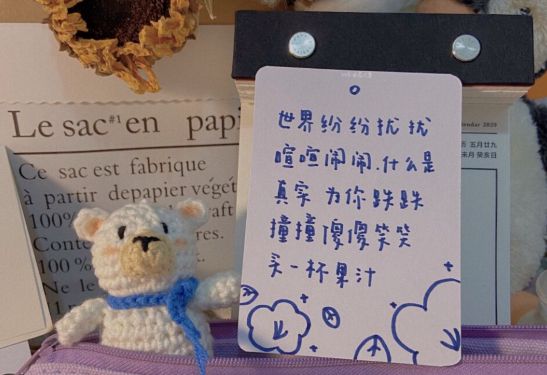 Le sac#1 en papi
Ce sac est fabrique
à partir de papier végét
100%
craft
100%
Ne le
世界纷纷扰扰
喧喧闹闹.什么是
真实 为你跌跌
撞撞傻傻笑笑
买一杯果汁
endar 2020
五月廿九
未月 癸亥日